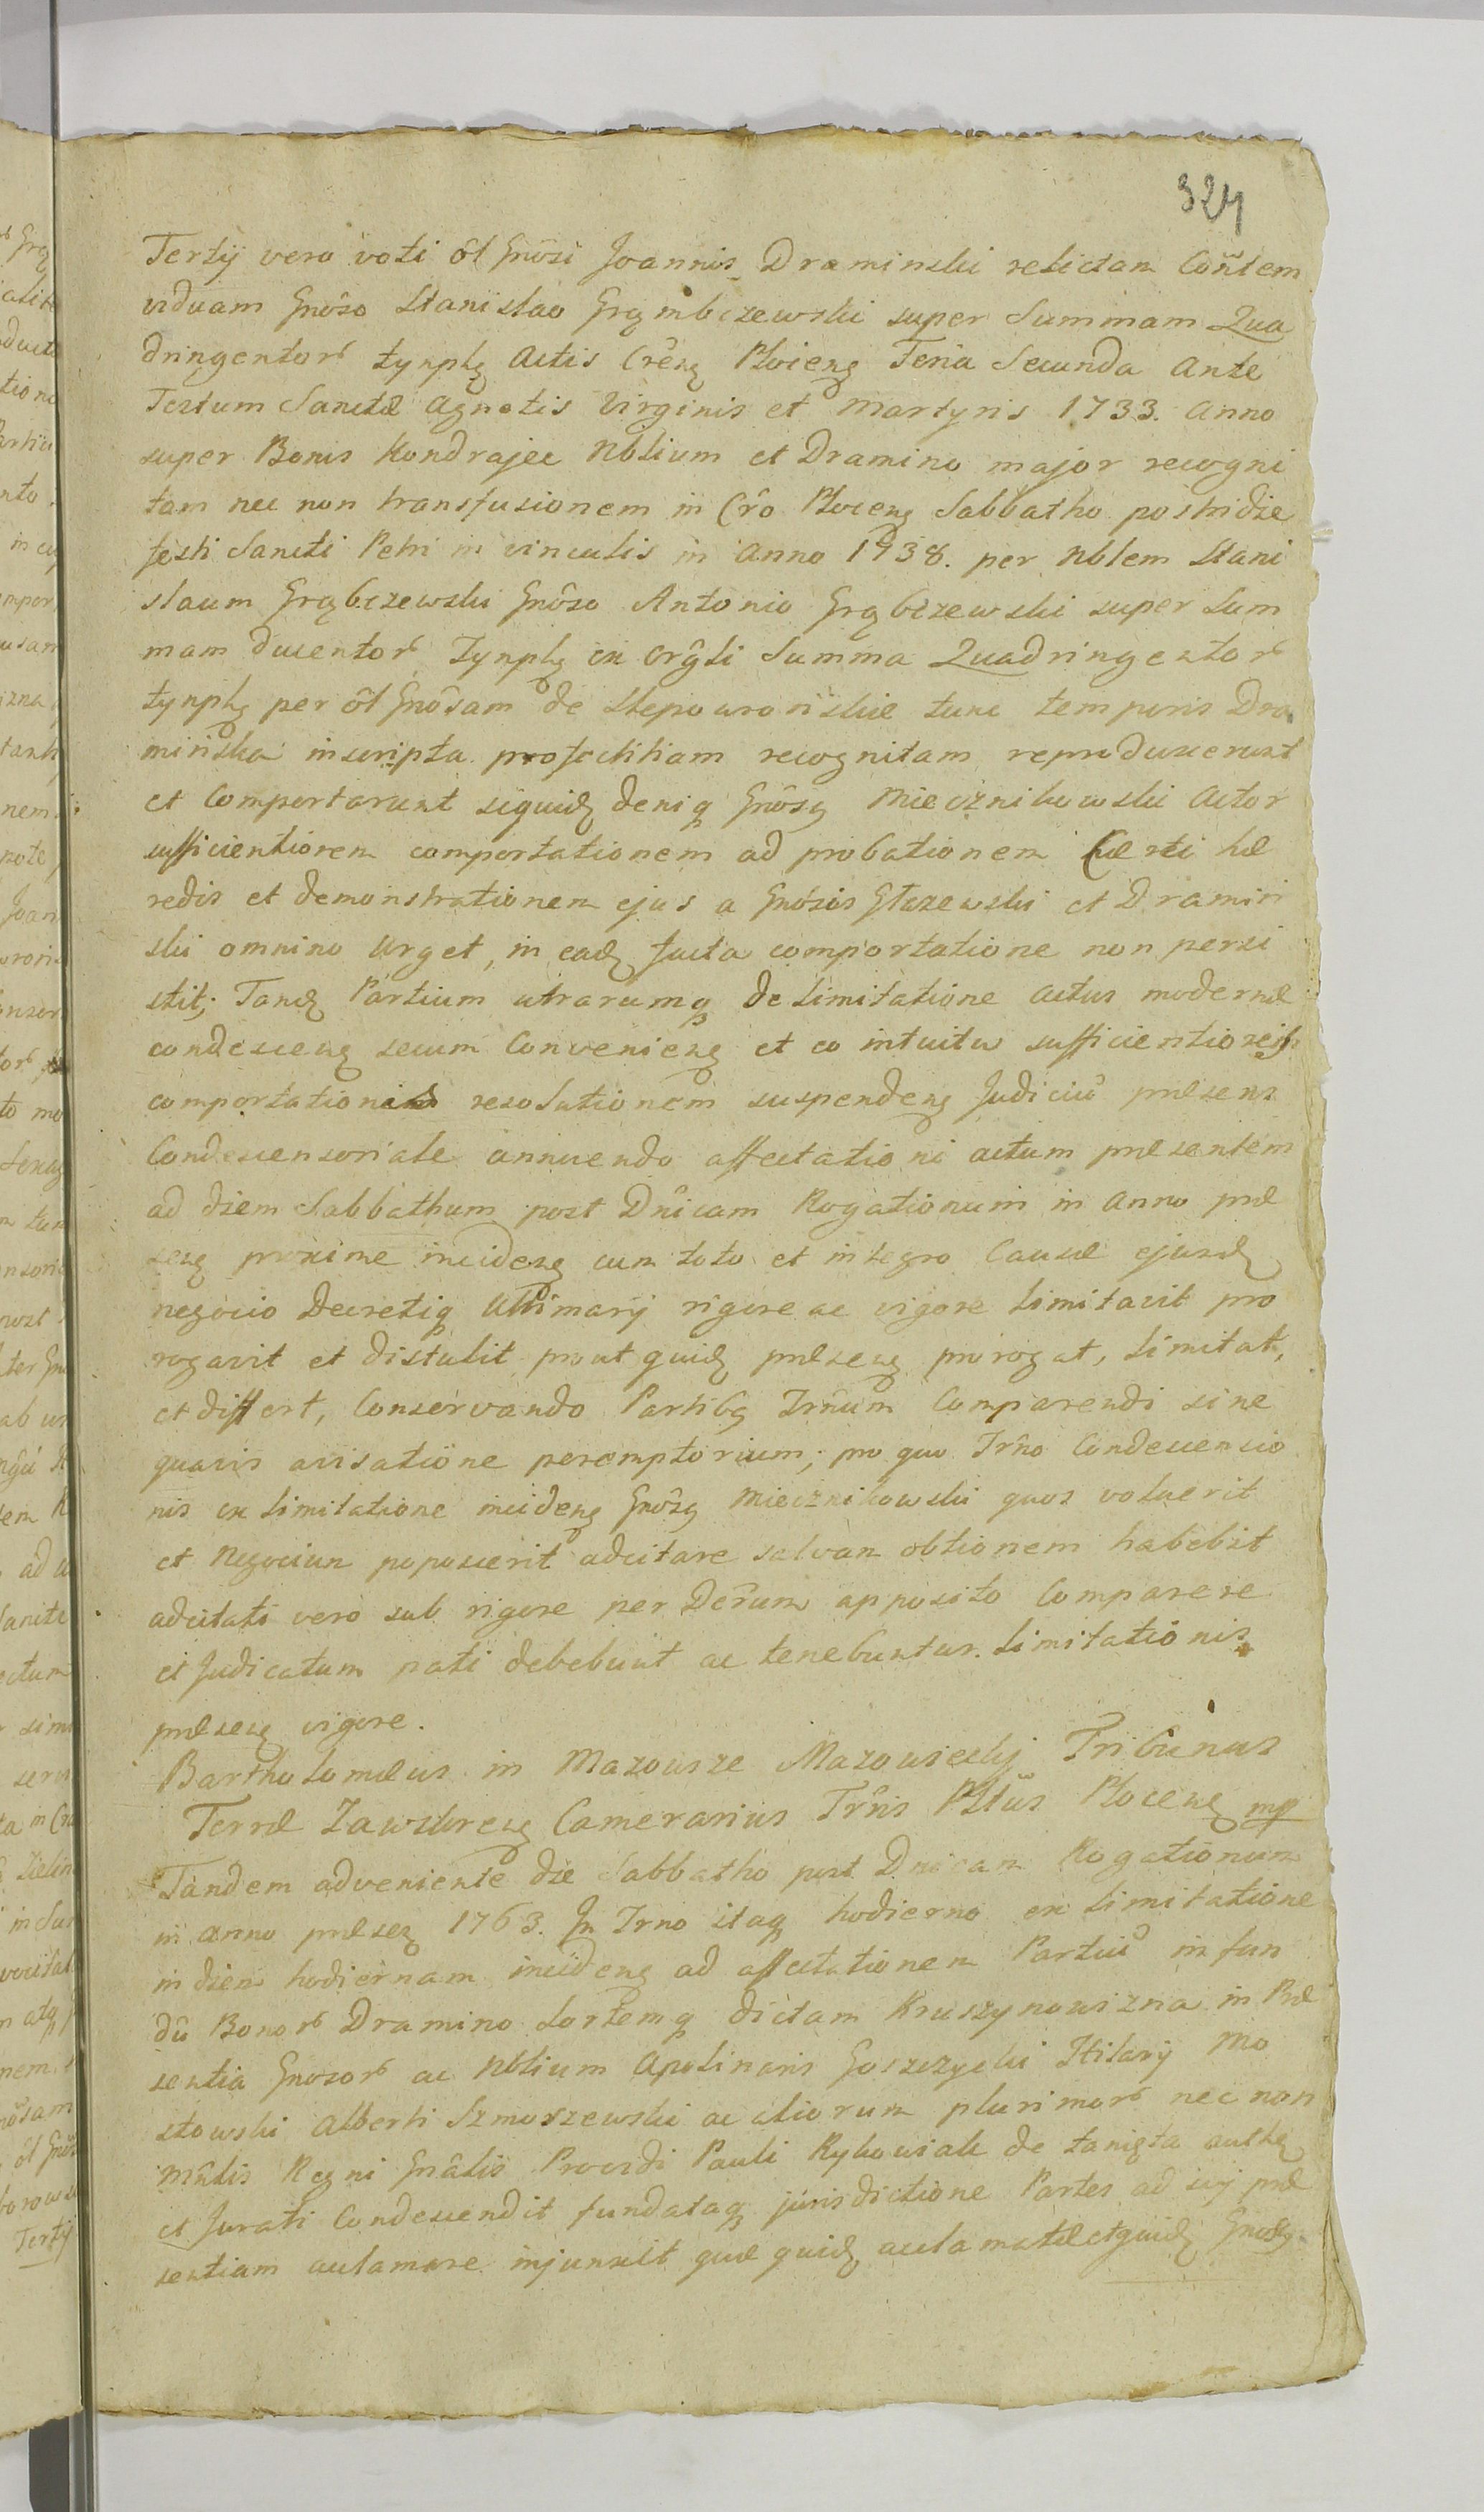 324
Tertij vero voti ol Gnôsi Joannis Draminski relictam Con̂tem
viduam Gnôso Stanislao Grąmbczewski super Summam Qua
dringentorb tynphʒ Actis Crêñʒ Plocienʒ Feria Secunda Ante
Festum Sanctæ Agnetis Virginis et Martyris 1733. Anno
super Bonis Kondrajec Nblium et Dramino major recogni
tam nec non transfusionem in Crô Plocenʒ Sabbatho postridie
festi Sancti Petri in vinculis in Anno 1738. per Nblem Stani
slaum Grąbczewski Gnôso Antonio Grąbczewski super Sum
mam ducentorb Tynphʒ ex Orĝli Summa Quadringentorb
tynphʒ per ol Gnôsam de Stępowronskie tunc temporis Dra
minska inscripta profectitiam recognitam reproduxerunt
et Comportarunt siquidʒ deniqʒ Gnôsʒ Miecznikowski Actor
sufficientiorem comportationem ad probationem Certi hæ
redis et demonstrationem ejus a Gnôsis Głazewski et Dramin
ski omnino urget, in eadʒ facta comportatione non persi
stit; Tandʒ Partium utrarumqʒ de limitatione actus modernæ
condescenʒ secum Convenienʒ et eo intuitu sufficientioris
comportationis resolutionem suspendenʒ Judiciū præsens
Condescensoriale annuendo affectationi actum præsentem
ad diem Sabbathum post Dnîcam Rogationum in Anno præ
senʒ proxime incidenʒ cum toto et integro Causæ ejusdʒ
negocio Decretiqʒ Ultimarij rigore ac vigore limitavit pro
rogavit et distulit prout quidʒ præsenʒ prorogat, limitat,
et differt, Conservando Partibʒ Trn̂um Comparendi sine
quavis avisatione peremptorium; pro quo Trn̂o Condescensio
nis ex limitatione incidenʒ Gnôsʒ Miecznikowski quos voluerit
et Negocium poposcerit adcitare salvam obtionem habebit
adcitati vero sub rigore per Decr̂um apposito Comparere
et Judicatum pati debebunt ac tenebuntur. limitationis
præsenʒ vigore.
Bartholomæus in Mazowsze Mazowiecki Tribunus
Terræ Zawskrenʒ Camerarius Trr̂is Pltus Plocenʒ mp
Tandem adveniente die Sabbatho post Dnicam Rogationum
in anno præsenʒ 1763. In Trno itaqʒ hodierno ex limitatione
in diem hodiernam incidenʒ ad affectationem Partiū in fun
dū Bonorb Dramino Sortemqʒ dictam Kruszynowizna in Præ
sentia Gnosorb ac Nblium Apolinaris Goszczycki Hilarij Mo
stowski Alberti Szmoszewski ac aliorum plurimorb nec non
Mn̂lis Regni Gnâlis Providi Pauli Rykowiak de Łanięta autʰʒ
et Jurati Condescendit fundataqʒ jurisdictione Partes ad sui præ
sentiam acclamare injunxit quæ quidʒ acclamatæ etquidʒ Gnosʒ